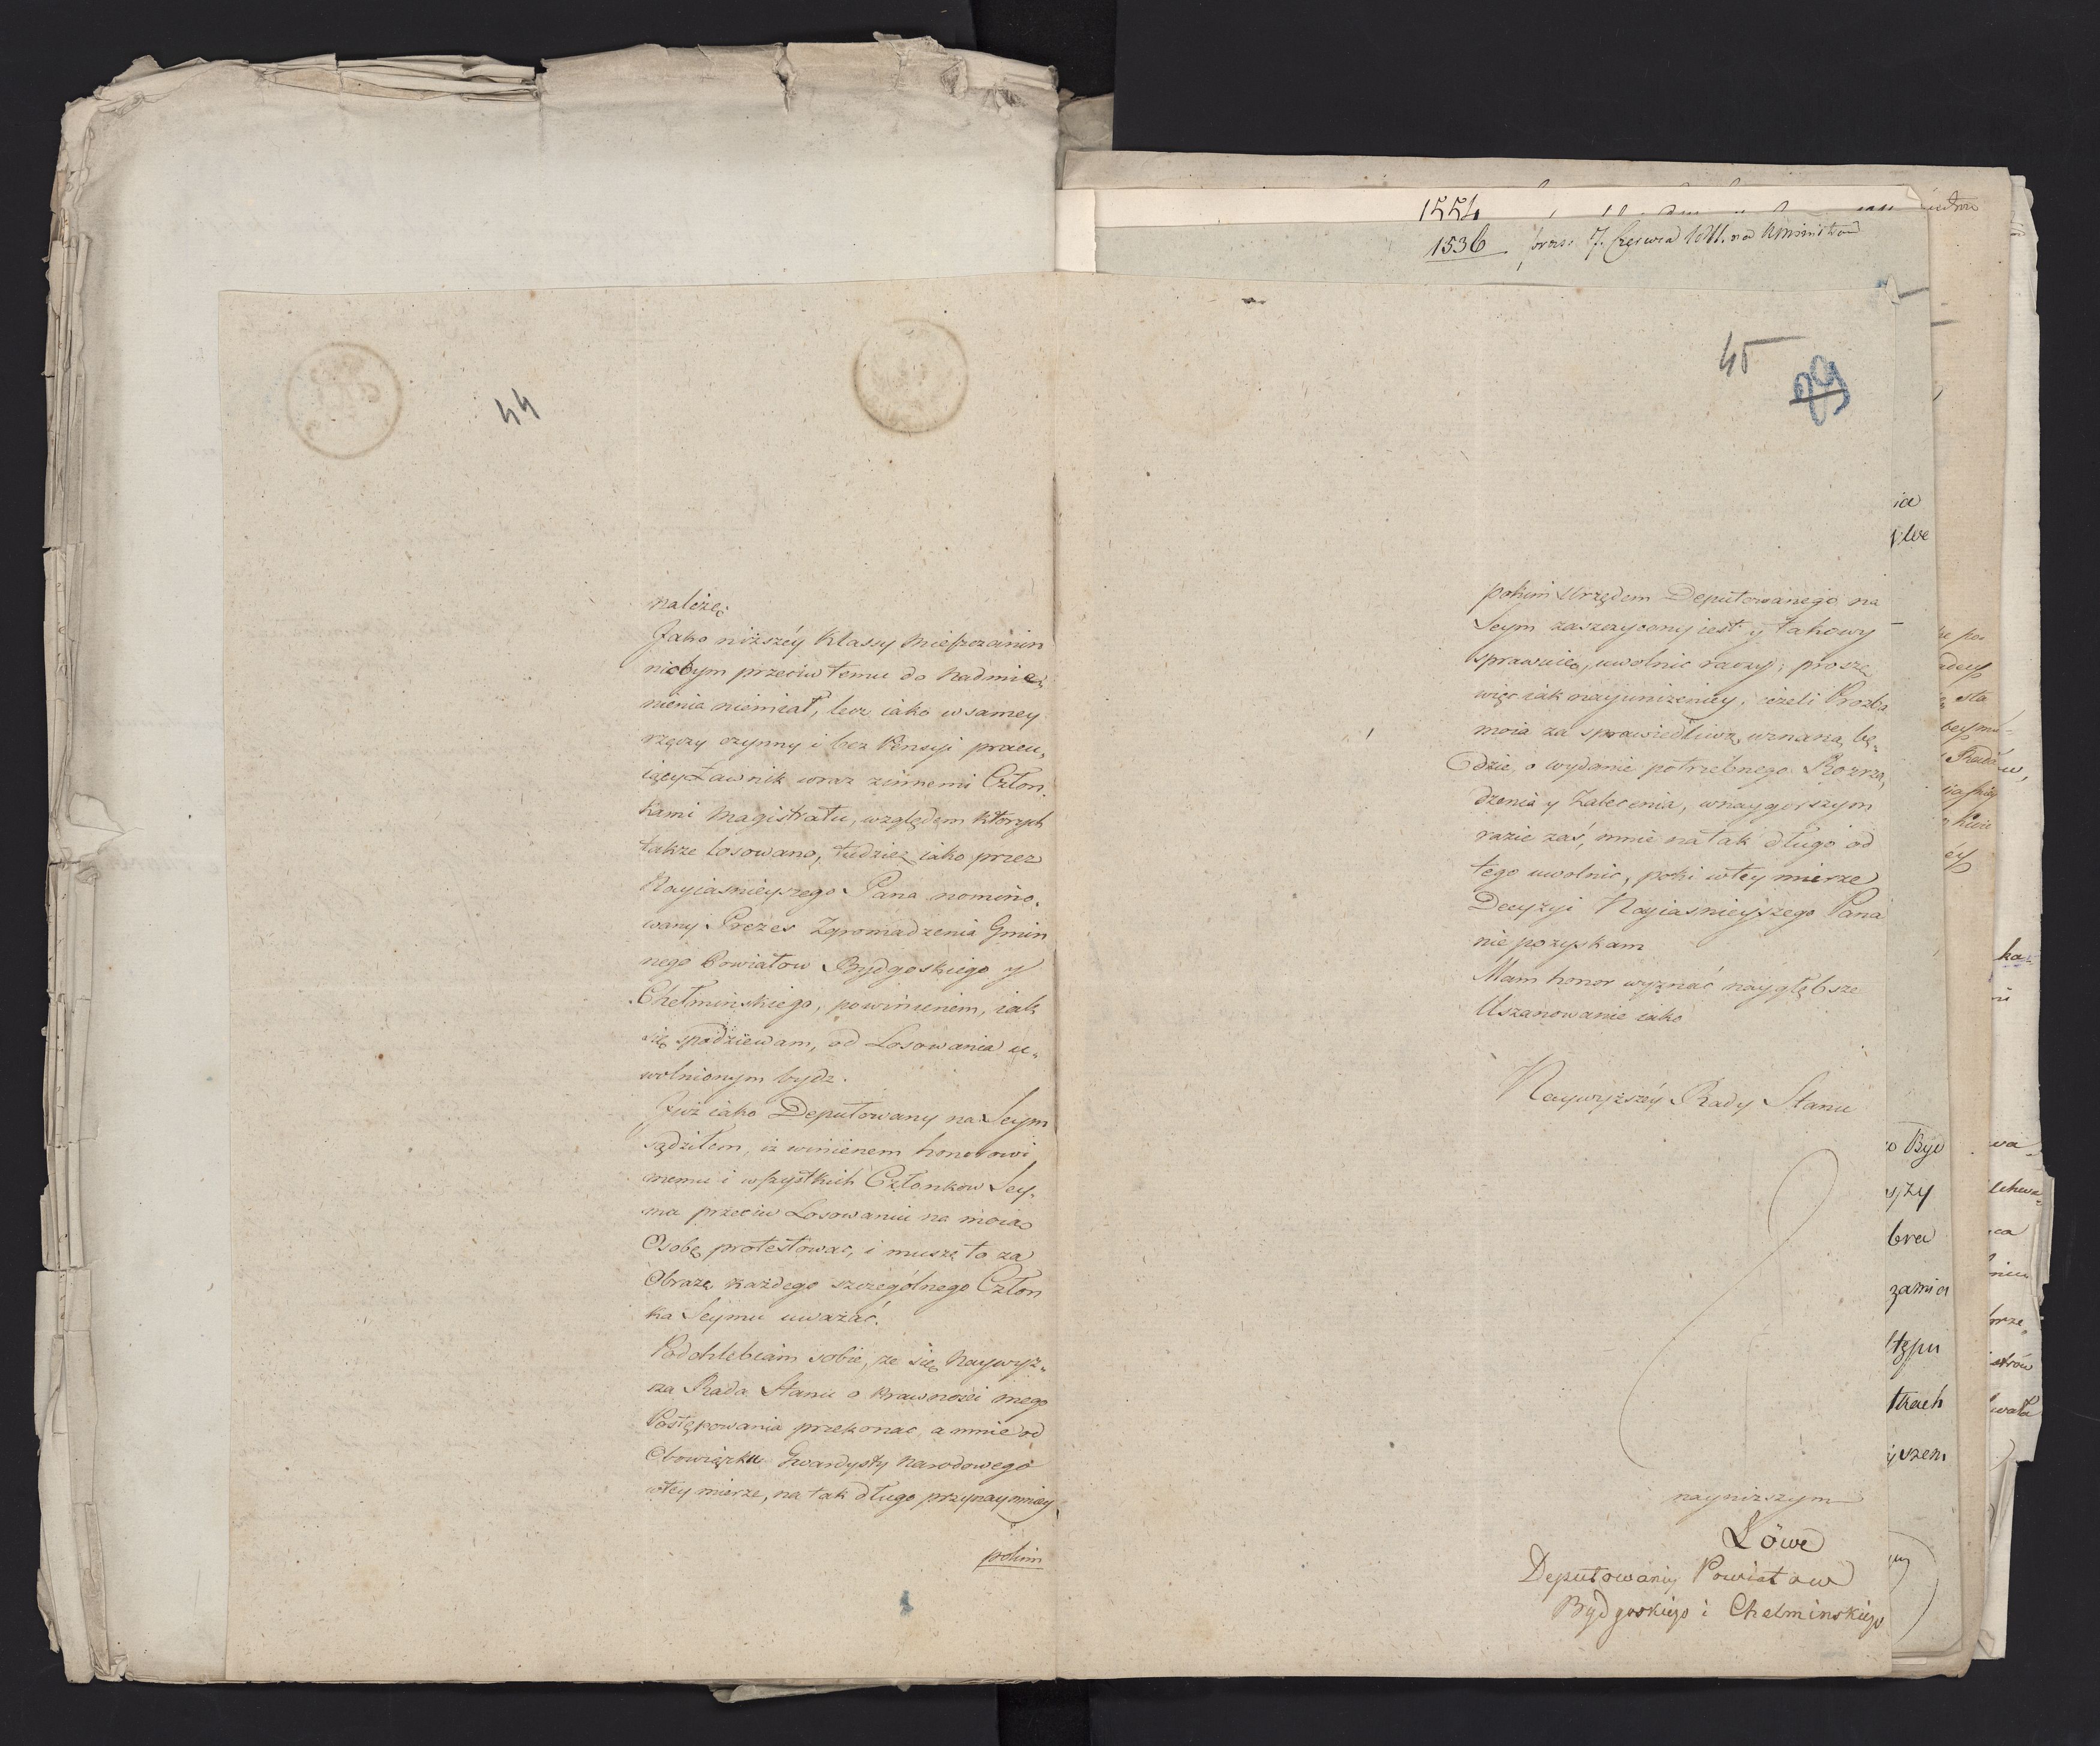 44
należę.
Jako niższéy Klassy Mieszczanin
nicbym przeciw temu do Nadmie„
nienia niemiał, lecz iako w samey
rzęczy czynny i bez Pensyi pracu„
iący Ławnik wraz zinnemi Człon.
kami Magistratu, względem których
także losowano, tudzież iako przez
Nayiasnieyszego Pana nomino„
wany Prezes Zgromadzenia Gmin
nego Powiatow Bydgoskiego y
Chełminskiego, powinienem, iak
się spodziewam, od Losowania u„
wolnionym bydz.
Już iako Deputowany na Seym
sądziłem, iż winienem honorowi
memu i wszystkich Członkow Sey„
mu przeciw Losowaniu na moią
Osobę protestować, i muszę to za
Obrazę każdego szczególnego Człon
ka Seymu uważać.
Podchlebiam sobie, że się Naywyż„
sza Rada Stanu o Prawności mego
Postępowania przekonac, a mnie od
Obowiązku Gwardysty Narodowego
wtey mierze, na tak długo przynaymniey
pokim
1554
1536 prez: 7. Czerwca 1811. na
45
89
pokim Urzędem Deputowanego na
Seym zaszczycony iest y takowy
sprawuię, uwolnic raczy; proszę
więc iak nayuniżeniey, ieżeli Prozba
moia za sprawiedliwą uznaną bę„
dzie, o wydanie potrzebnego Rozrzą„
dzenia y Zalecenia, wnaygorszym
razie zaś, mnie na tak długo od
tego uwolnic, poki wtey mierze
Decyzyi Nayiasnieyszego Pana
nie pozyskam
Mam honor wyznać naygłębsze
Uszanowanie iako
Naywyższéy Rady Stanu
nayniższym
Löwe
Deputowany Powiatow
Bydgoskiego i Chelminskiego